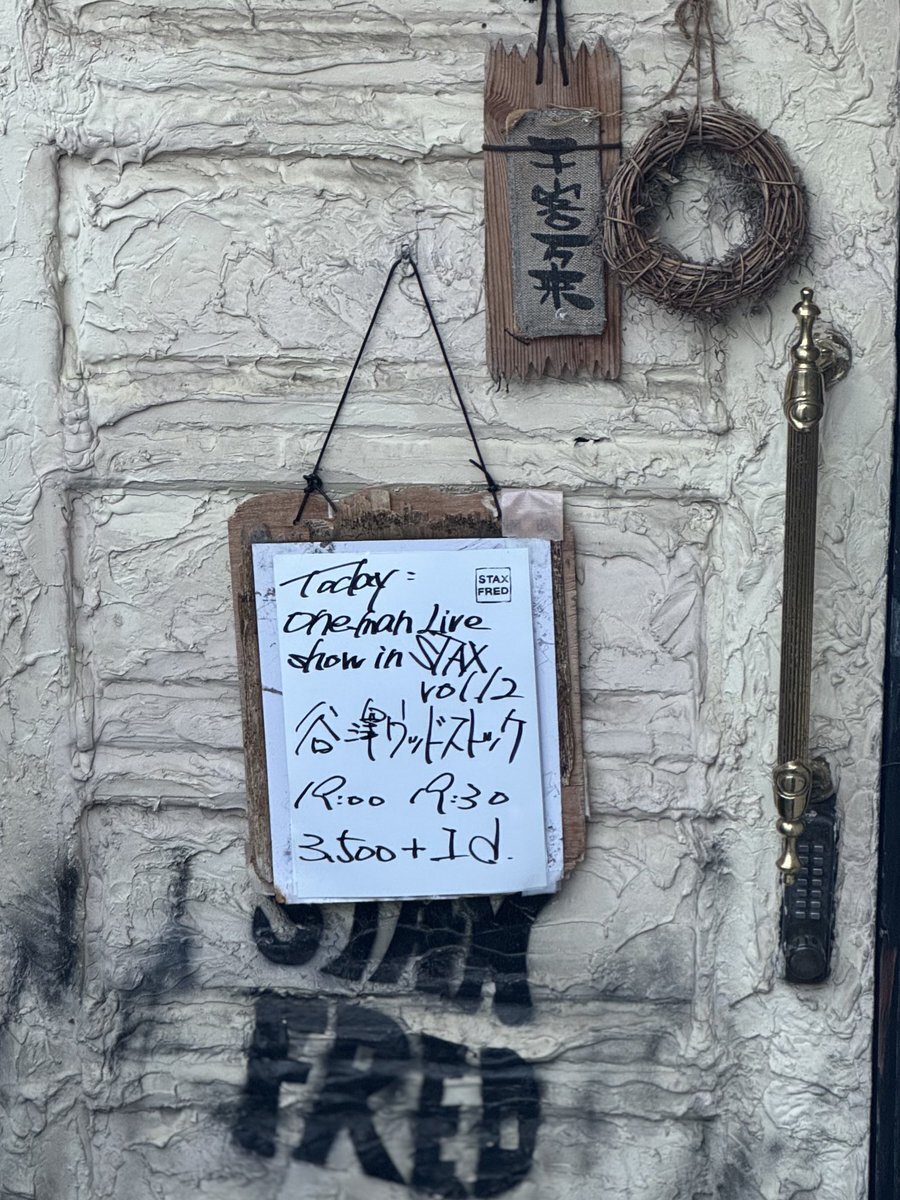 千客万来
Today:
STAX
FRED
one man Live
show in STAX
vol.12
谷津ウッドストック
19:00 19:30
3.500+1d.
STAX
FRED